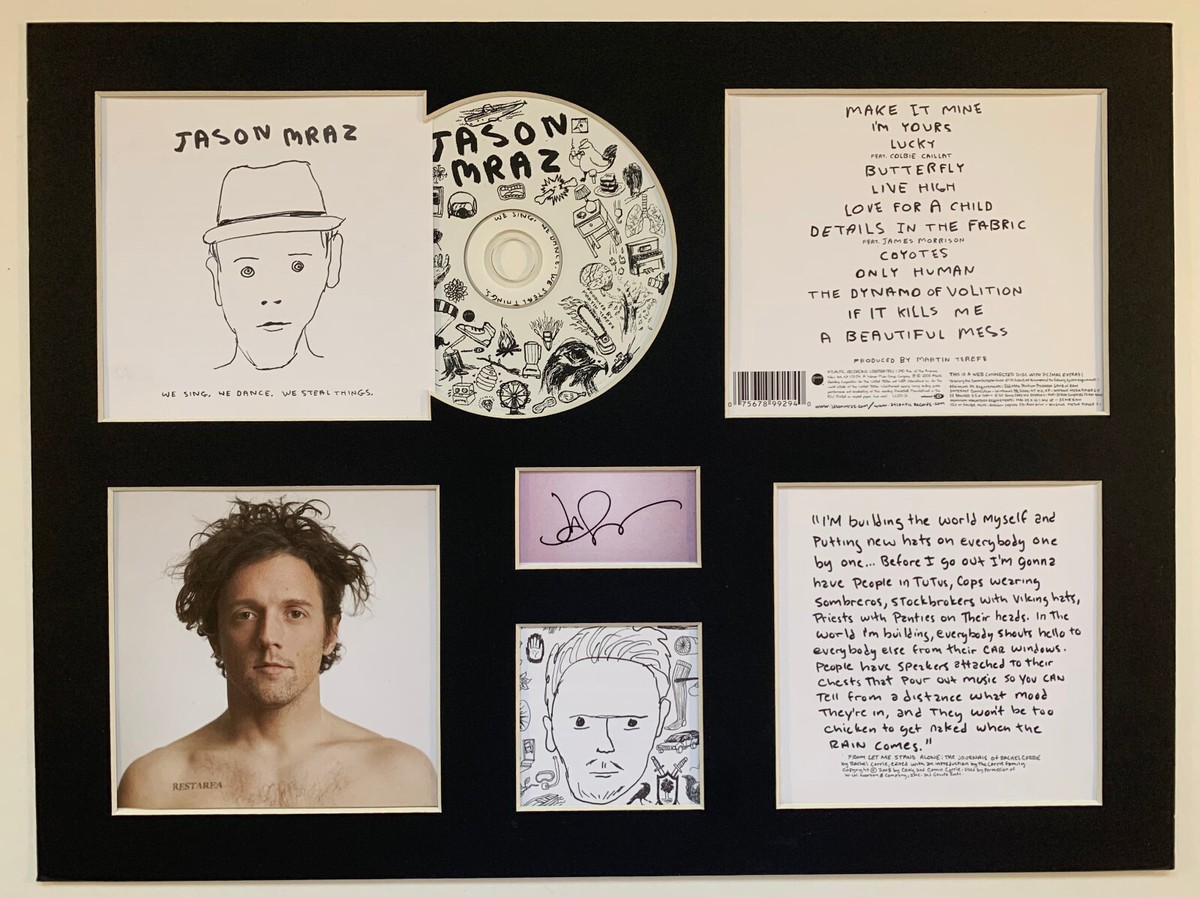 JASON MRAZ
WE SING. WE DANCE. WE STEAL THINGS.
JASON
MRAZ
WE SING. WE DANCE. WE STEAL THINGS.
MAKE IT MINE
I'M YOURS
LUCKY
FEAT. COLBIE CAILLAT
BUTTERFLY
LIVE HIGH
LOVE FOR A CHILD
DETAILS IN THE FABRIC
FEAT. JAMES MORRISON
COYOTES
ONLY HUMAN
THE DYNAMO OF VOLITION
IF IT KILLS ME
A BEAUTIFUL MESS
PRODUCED BY MARTIN TEREFE
THIS IS A WEB CONNECTED DISC WITH
0 75678 99294 0
RESTAREA
"I'M building the world Myself and
Putting new hats on everybody one
by one... Before I go out I'm gonna
have People in TuTus, Cops wearing
Sombreros, Stockbrokers with Viking hats,
Priests with Panties on Their heads. In the
world I'm building, everybody shouts hello to
everybody else from their CAR windows.
People have Speakers attached to their
chests That Pour out music so you CAN
Tell from a distance what mood
They're in, and They won't be too
chicken to get naked when the
RAIN comes."
FROM LET ME STAND ALONE: THE JOURNALS OF RACHEL CORRIE